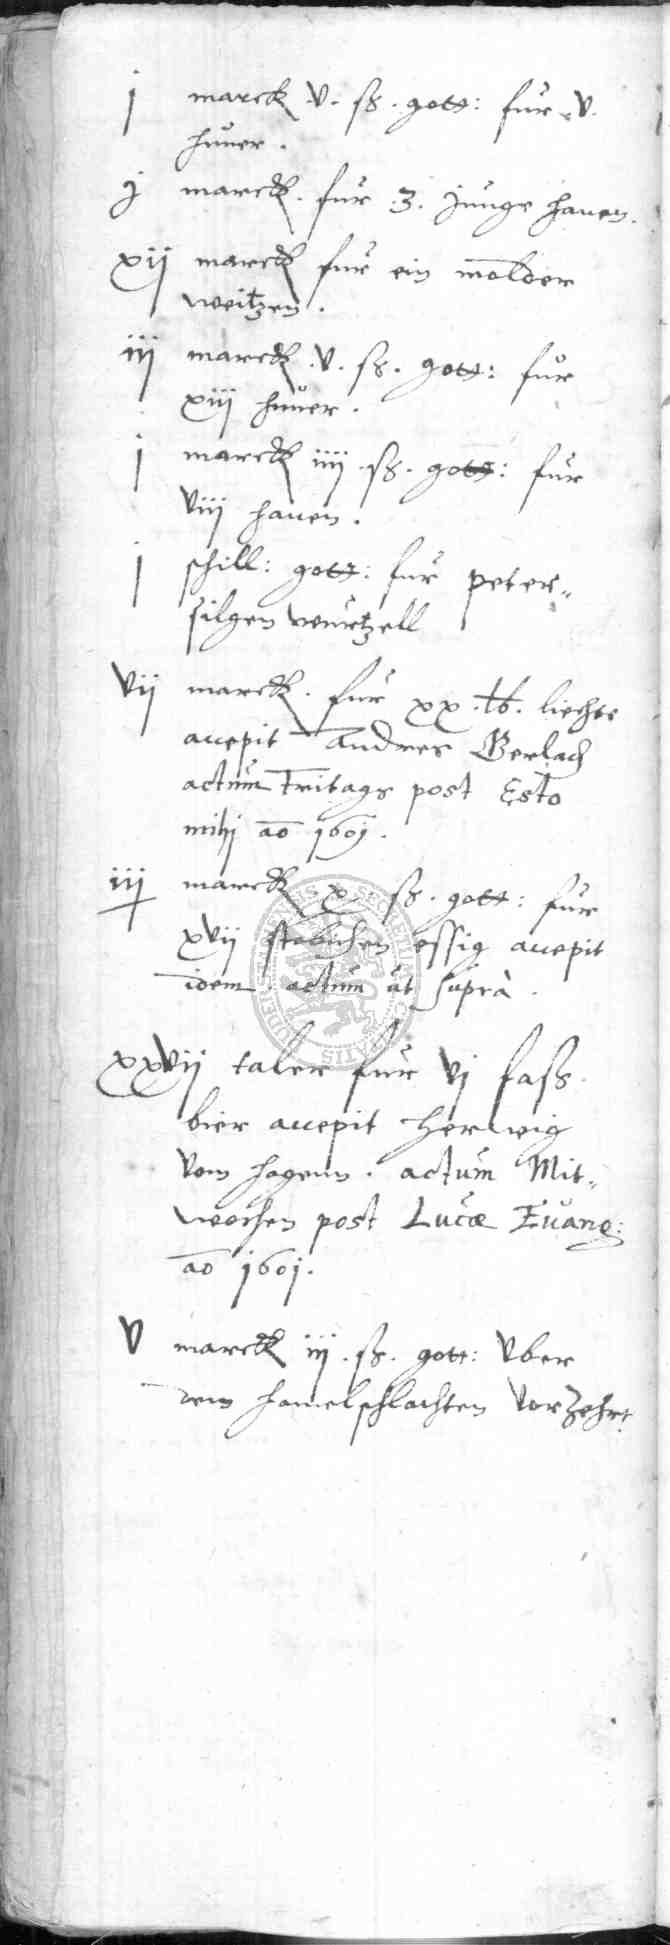 j marck v. ß. gott: fur v.
huner.
j marck. fur 3. junge hanen.
xij marck fur ein molder
weitzen.
iij marck. v. ß. gott: fur
xiij huner.
j marck iiij. ß. gott: fur
viij hanen.
j schill: gott: fur peter„
silgen wurtzell
vij marck. fur xx. lb. liechte
accepit Andres Gerlach
actum Fritags post Esto
mihi ao 1601.
iij marck x ß. gott: fur
xvij stobichen essig accepit
idem. actum ut supra.
xxvij taler fur vj fass
bier accepit Herwig
vom Hagenn. actum Mit„
wochen post Lucae Evang:
ao 1601.
v marck iij. ß. gott: uber
dem hamelschlachten vorzehrt.
SECRETI CIVITATIS DUDERSTADENSIS